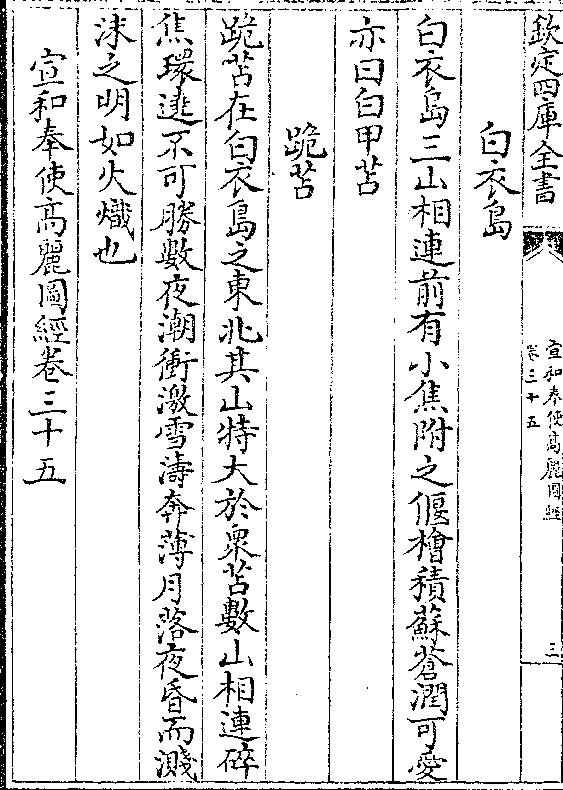 欽定四庫全書
宣和奉使高麗圖經
卷三十五
三
白衣島
白衣島三山相連前有小焦附之偃檜積蘇蒼潤可愛
亦曰白甲苫
跪苫
跪苫在白衣島之東北其山特大於衆苫數山相連碎
焦環遶不可勝數夜潮衝激雪濤奔薄月落夜昏而濺
沫之明如火熾也
宣和奉使高麗圖經卷三十五